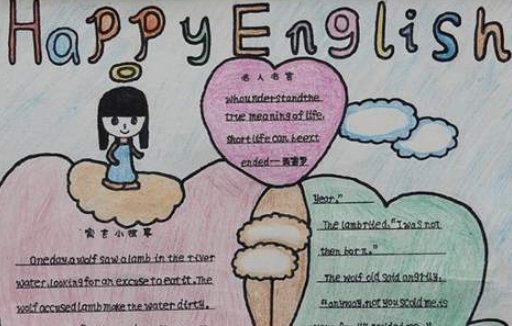 Happy English
名人名言
whounderstandthe
true meaning of life,
short life can beext
ended—
寓言小故事
Oneday a wolf saw a lamb in the river
water, looking for an excuse to eat it. The
wolf accused lamb make the water dirty,
year."
The lamb cried, "I was not
then born."
The wolf old said angrily,
"anyway, not you scold me, is